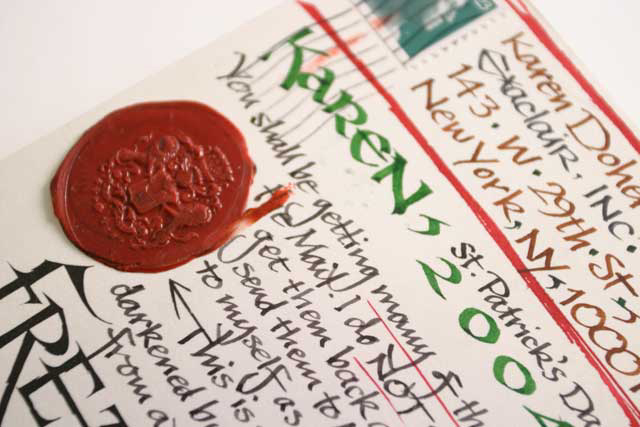 Karen Doha
Exaclair, INC.
143. W. 29th. St.,
New York, NY, 1000
KAREN,
St Patrick's Da
2004
You shall be getting many of th
Mail. I do NOT
get them back
(send them to
to myself as
This is
darkened b
from a
FRET